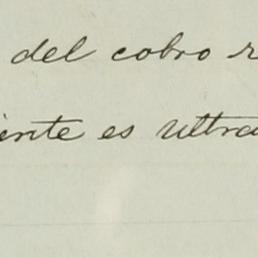 del cobro
iente es ultra